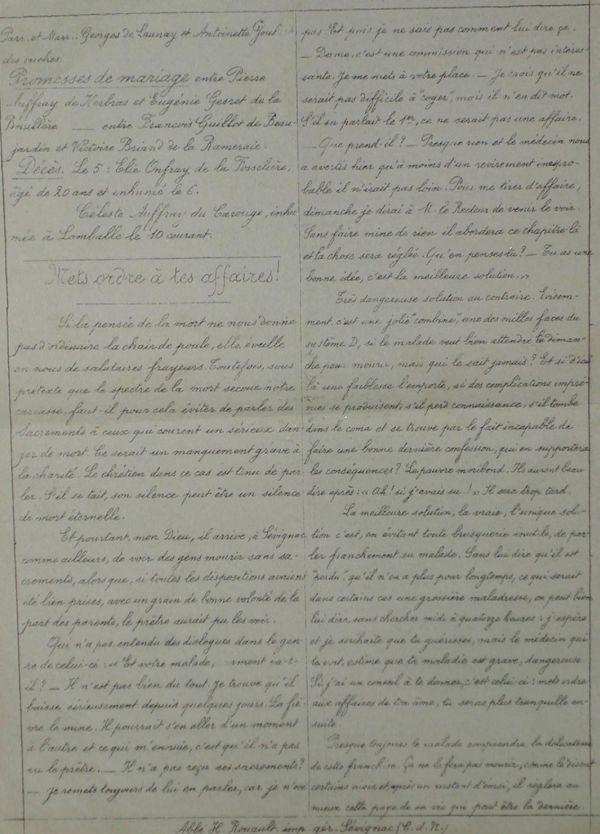 Parr. et Marr.: Georges de Launay et Antoinette
des ruches.
Promesses de mariage entre Pierre
Auffray de Kerbras et Eugénie Gesret de la
entre François Guillot de Beau-
jardin et Victoire Briand de la Rameraie.
Décès. Le 5: Elie Onfray de la Fosselière,
âgé de 20 ans et inhumé le 6.
Céleste Auffray du Carouge, inhu-
mée à Lamballe le 10 courant.
Mets ordre à tes affaires!
Si la pensée de la mort ne nous donne
pas d'ordinaire la chair de poule, elle éveille
en nous de salutaires frayeurs. Toutefois, sous
prétexte que le spectre de la mort secoue notre
carcasse, faut-il pour cela éviter de parler des
Sacrements à ceux qui courent un sérieux dan-
ger de mort. Ce serait un manquement grave à
la charité. Le chrétien dans ce cas est tenu de par-
ler. S'il se tait, son silence peut être un silence
de mort éternelle.
Et pourtant, mon Dieu, il arrive, à Sévignac
comme ailleurs, de voir des gens mourir sans sa-
crements, alors que, si toutes les dispositions avaient
été bien prises, avec un grain de bonne volonté de la
part des parents, le prêtre aurait pu les voir.
Qui n'a pas entendu des dialogues dans le gen-
re de celui-ci: «Et votre malade, comment va-t-
il? — Il n'est pas bien du tout. Je trouve qu'il
baisse sérieusement depuis quelques jours. La fiè-
vre le mine. Il pourrait s'en aller d'un moment
à l'autre et ce qui m'ennuie, c'est qu'il n'a pas
vu le prêtre. — Il n'a pas reçu ses sacrements?
— Je remets toujours de lui en parler, car je n'ose
pas. Et puis je ne sais pas comment lui dire ça.
— Dame, c'est une commission qui n'est pas intéres-
sante. Je me mets à votre place. — Je crois qu'il ne
serait pas difficile à "coger", mais il n'en dit mot.
S'il en parlait le 1er, ce ne serait pas une affaire.
— Que prend-il? — Presque rien et le médecin nous
a avertis hier qu'à moins d'un revirement impro-
bable il n'irait pas loin. Pour me tirer d'affaire,
dimanche je dirai à M. le Recteur de venir le voir.
Sans faire mine de rien il abordera ce chapitre-là
et la chose sera réglée. Qu'en penses-tu? — Tu as une
bonne idée, c'est la meilleure solution.»
Très dangereuse solution au contraire. Evidem-
ment, c'est une jolie "combine", une des milles faces du
système D, si le malade veut bien attendre le diman-
che pour mourir, mais qui le sait jamais? Et si d'ici
là une faiblesse l'emporte, si des complications impré-
vues se produisent, s'il perd connaissance, s'il tombe
dans le coma et se trouve par le fait incapable de
faire une bonne dernière confession, qui en supportera
les conséquences? Le pauvre moribond. Ils auront beau
dire après: «Ah! si j'avais su!» Il sera trop tard.
La meilleure solution, la vraie, l'unique solu-
tion c'est, en évitant toute brusquerie inutile, de par-
ler franchement au malade. Sans lui dire qu'il est
"perdu", qu'il n'en a plus pour longtemps, ce qui serait
dans certains cas une grossière maladresse, on peut bien
lui dire, sans chercher midi à quatorze heures: j'espère
et je souhaite que tu guérisses, mais le médecin qui
te voit, estime que ta maladie est grave, dangereuse.
Si j'ai un conseil à te donner, c'est celui-ci: mets ordre
aux affaires de ton âme, tu seras plus tranquille en-
suite.
Presque toujours le malade comprendra la délicatesse
de cette franchise. Ça ne le fera pas mourir, comme le disent
certains niais et après un instant d'émoi, il règlera au
mieux cette page de sa vie qui peut être la dernière.
Abbé H. Rouault imp. gér. Sévignac (C. d. N.)